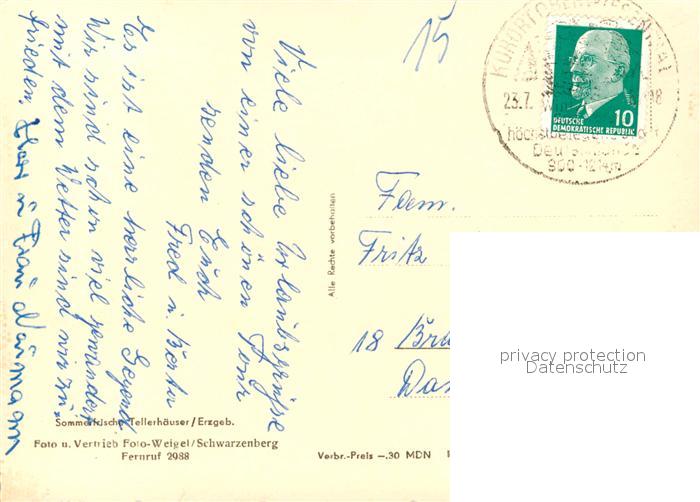 15
KURORT OBERWIESENTHAL
23.7.
höchstgelegene
Deutschlands
900-1214m
10
DEUTSCHE
DEMOKRATISCHE REPUBLIK
Viele liebe Urlaubsgrüße
von einer schönen Tour
senden Euch
Fred u. Berta
Es ist eine herrliche Gegend
Wir sind schon viel gewandert
mit dem Wetter sind wir zu-
frieden. Herr u Frau Naumann
Alle Rechte vorbehalten
Fam.
Fritz
18
privacy protection
Datenschutz
Sommerfrische Tellerhäuser/Erzgeb.
Foto u. Vertrieb Foto-Weigel/Schwarzenberg
Fernruf 2988
Verbr.-Preis -.30 MDN